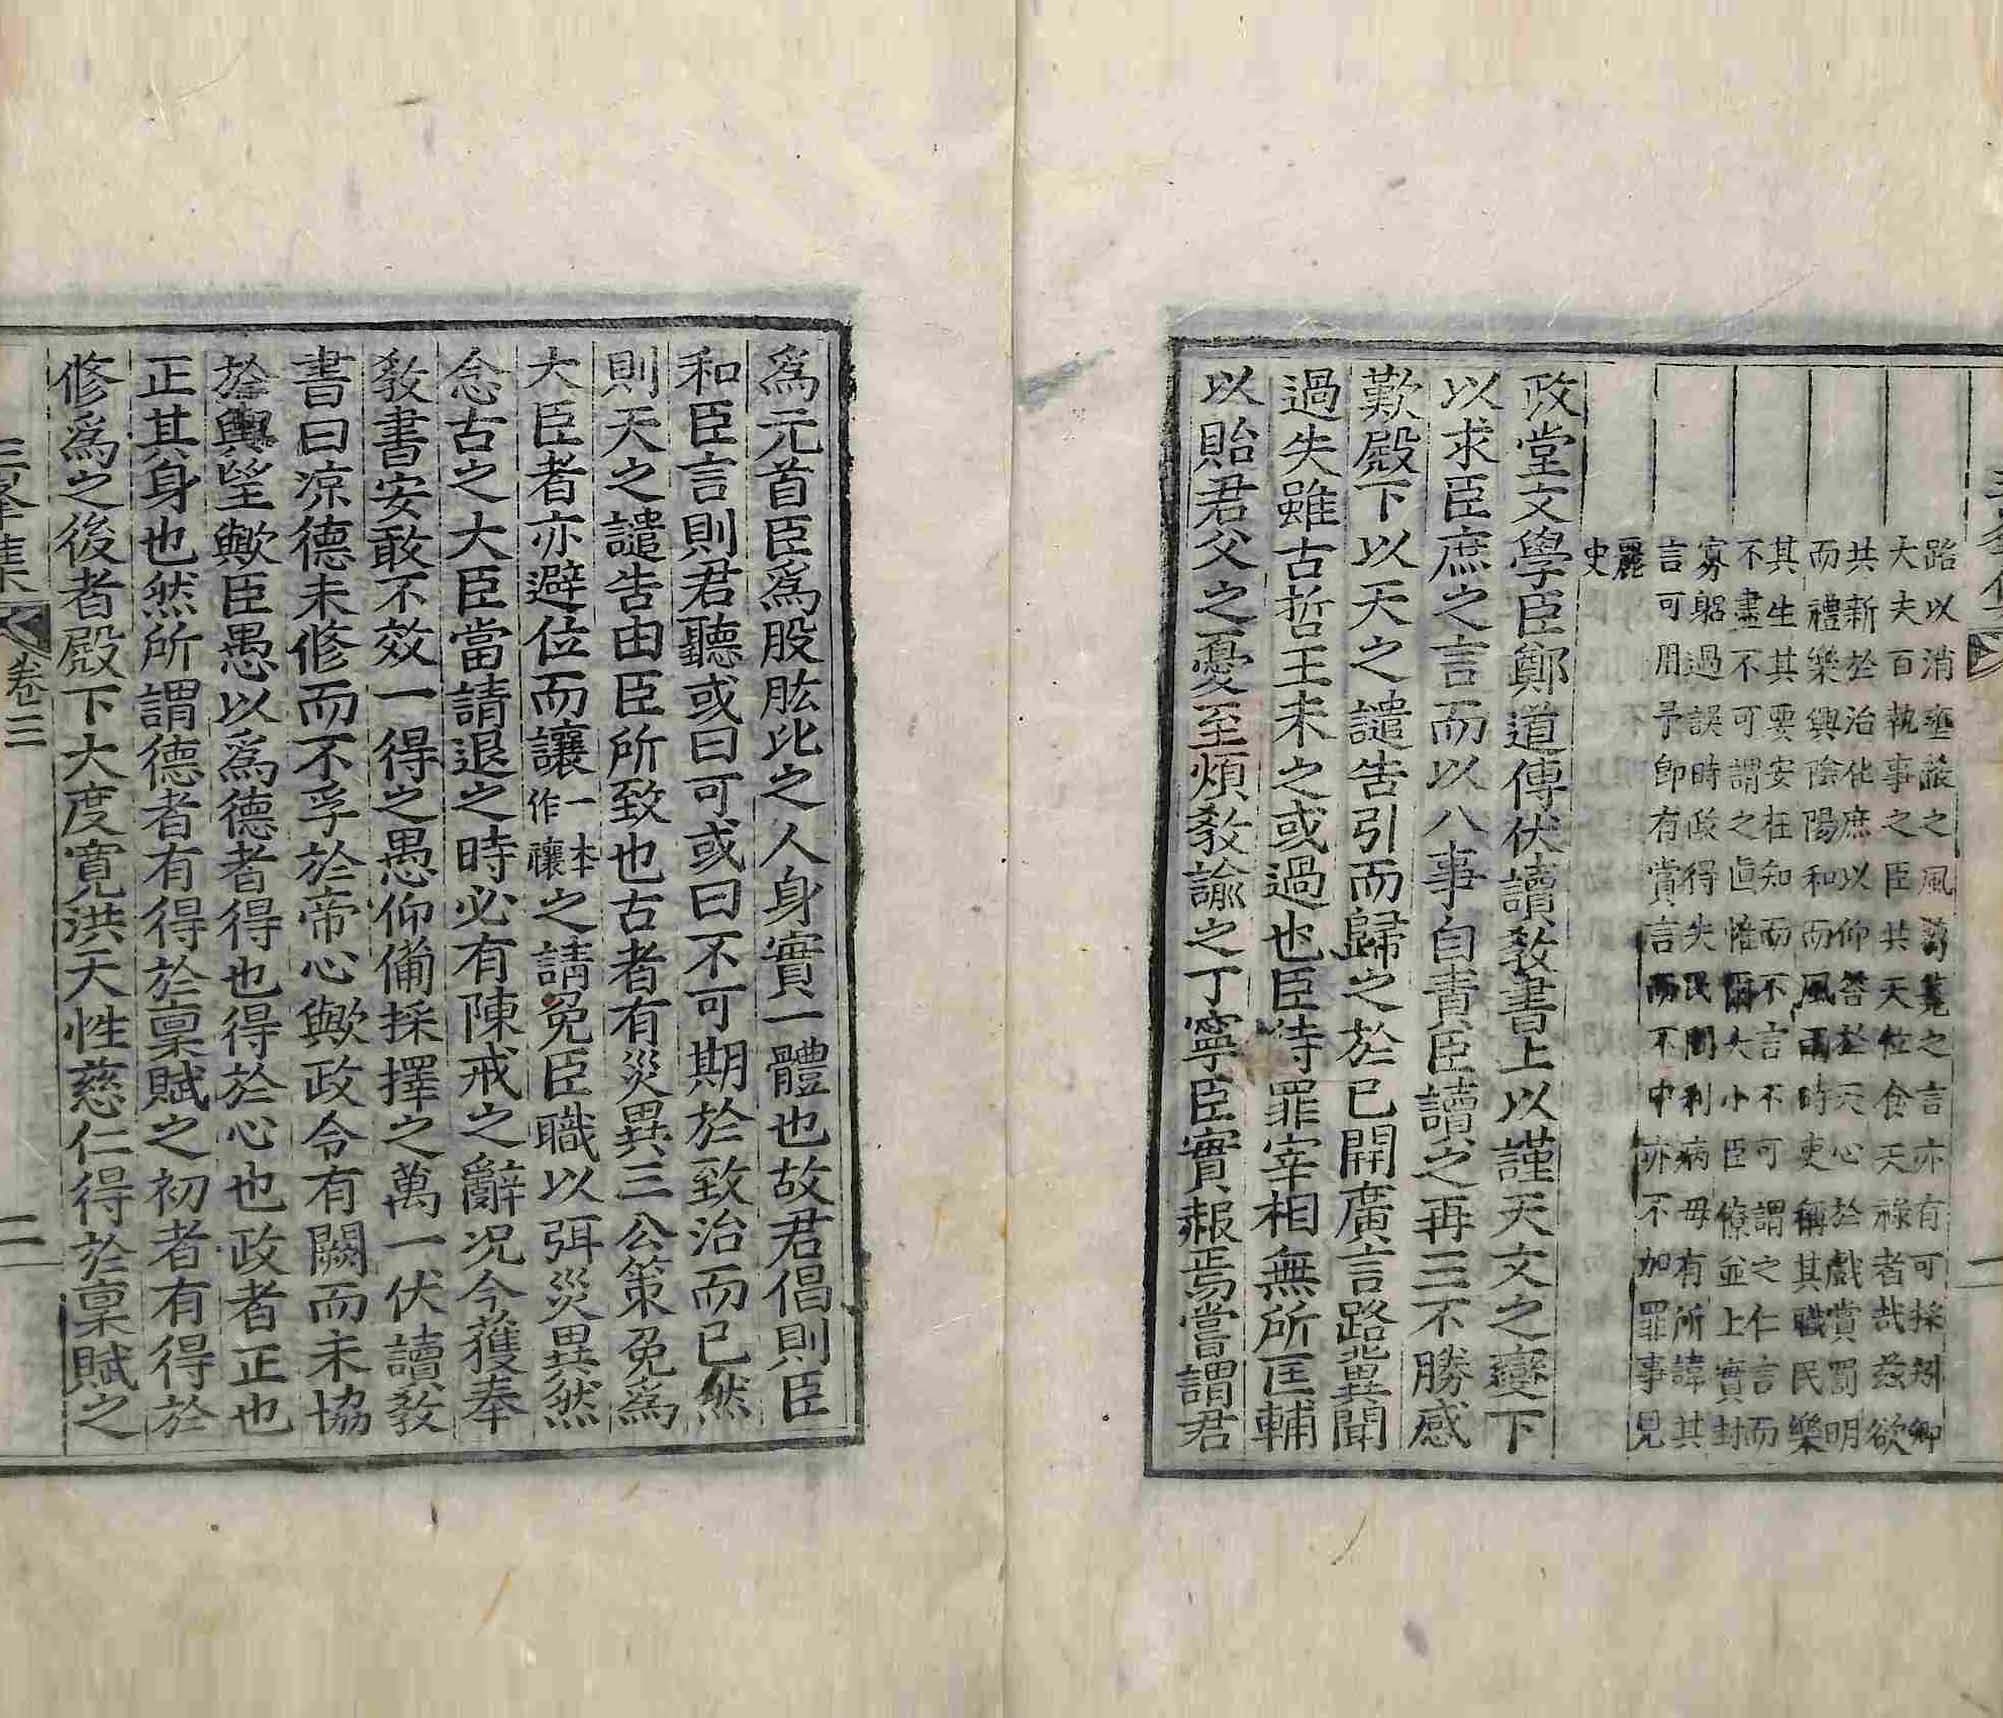 路以消壅蔽之風蒭蕘之言亦有可採矧卿
大夫百執事之臣共天位食天祿者哉玆欲
共新於治化庶以仰答於天心於戲賞罰明
而禮樂興陰陽和而風雨時吏稱其職民樂
其生其要安在知而不言不可謂之仁言而
不盡不可謂之直惟爾大小臣僚並上實封
寡躬過誤時政得失民間利病毋有所諱其
言可用予卽有賞言而不中亦不加罪事見
麗
史
政堂文學臣鄭道傳伏讀敎書上以謹天文之變下
以求臣庶之言而以八事自責臣讀之再三不勝感
歎殿下以天之譴告引而歸之於已開廣言路冀聞
過失雖古哲王未之或過也臣待罪宰相無所匡輔
以貽君父之憂至煩敎諭之丁寧臣實赧焉嘗謂君
爲元首臣爲股肱比之人身實一體也故君倡則臣
和臣言則君聽或曰可或曰不可期於致治而已然
則天之譴告由臣所致也古者有災異三公策免爲
大臣者亦避位而讓一本作禳之請免臣職以弭災異然
念古之大臣當請退之時必有陳戒之辭况今獲奉
敎書安敢不效一得之愚仰備採擇之萬一伏讀敎
書曰凉德未修而不孚於帝心歟政令有闕而未協
於輿望歟臣愚以爲德者得也得於心也政者正也
正其身也然所謂德者有得於稟賦之初者有得於
修爲之後者殿下大度寬洪天性慈仁得於稟賦之
三峯集 卷三 二